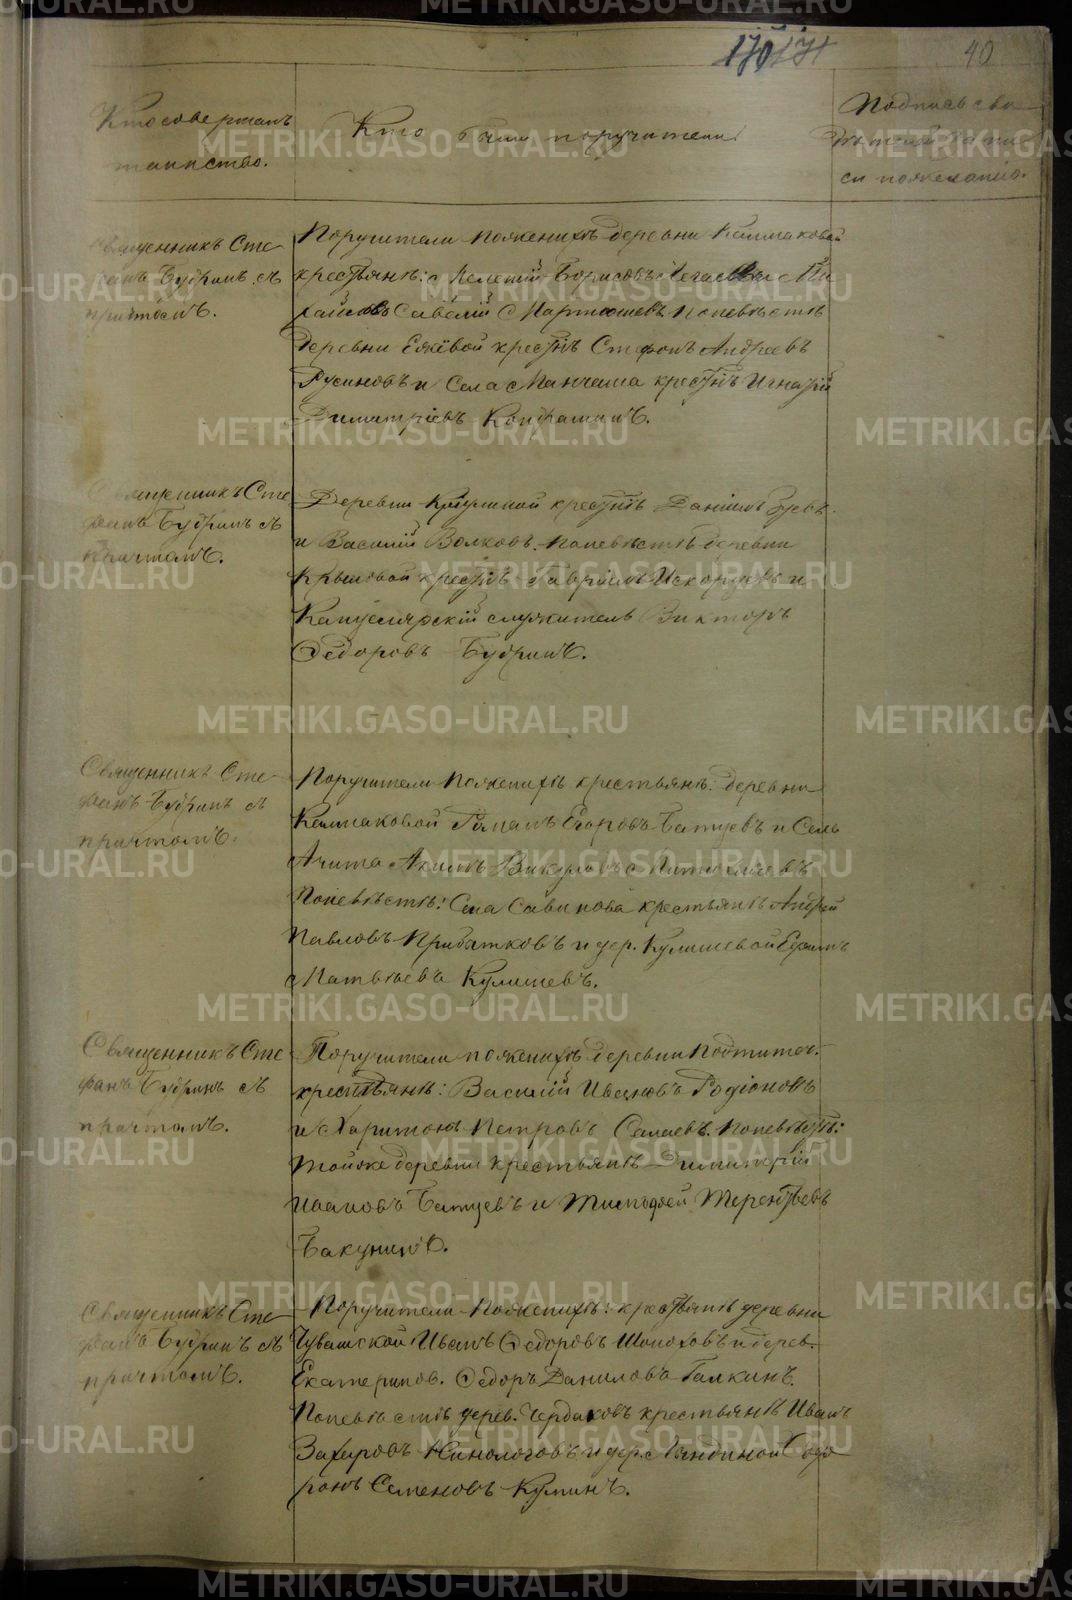 170 171
40
Кто совершалъ
таинство.
Кто были поручители
Подпись сви
дѣтелей записи
си пожеланію.
Священникъ Сте
фанъ Будринъ съ
причтомъ.
Поручители по женихѣ деревни Калмаковой
крестьяне: Мелетій Борисовъ и Ми
хайловъ Савелій Мартюшевъ по невѣстѣ
деревни Ежевой крестн. Стефанъ Андреевъ
Русиновъ и села Манчажа крестн. Игнатій
Димитріевъ Кондрашинъ.
Священникъ Сте
фанъ Будринъ съ
причтомъ.
Деревни крестн. Даніилъ Зуевъ
и Василій Волковъ. по невѣстѣ деревни
Крыловой крестн. Гавріилъ Искорцевъ и
Канцелярскій служитель Викторъ
Ѳедоровъ Будринъ.
Священникъ Сте
фанъ Будринъ съ
причтомъ.
Поручители по женихѣ крестьяне: деревни
Калмаковой Романъ Егоровъ Батуевъ и села
Ачита Акимъ Викуловъ
По невѣстѣ: Села Савинова крестьяне Андрей
Павловъ Прибытковъ и дер. Кулишевой Ефимъ
Матвѣевъ Кулишевъ.
Священникъ Сте
фанъ Будринъ съ
причтомъ.
Поручители по женихѣ деревни
крестьяне: Василій Ивановъ Родіоновъ
и Харитонъ Петровъ Самаевъ. По невѣстѣ:
той же деревни крестьяне Димитрій
Ивановъ Батуевъ и Тимофей Терентьевъ
Бакунинъ.
Священникъ Сте
фанъ Будринъ съ
причтомъ.
Поручители по женихѣ: крестьяне деревни
Чувашской Иванъ Ѳедоровъ Шопоховъ и дерев.
Екатеринов. Ѳедоръ Даниловъ Галкинъ.
По невѣстѣ дерев. Чердаковъ крестьяне Иванъ
Захаровъ Кинологовъ и дер. Лямдиной Ѳедо
ронъ Семеновъ Куминъ.
METRIKI.GASO-URAL.RU